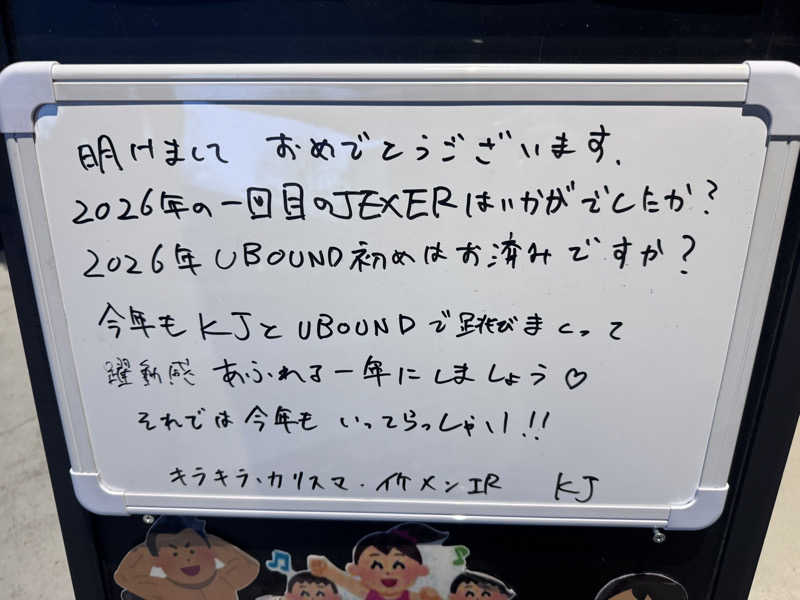 明けまして おめでとうございます.
2026年の一回目のJEXERはいかがでしたか?
2026年UBOUND初めはお済みですか?
今年もKJとUBOUNDで跳びまくって
躍動感 あふれる一年にしましょう♡
それでは今年も いってらっしゃい!!
キラキラ・カリスマ・イケメンIR KJ